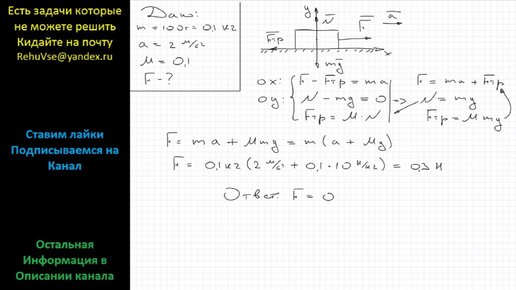 Есть задачи которые
не можете решить
Кидайте на почту
RehuVse@yandex.ru
Ставим лайки
Подписываемся на
Канал
Остальная
Информация в
Описании канала
Дано:
m = 100г = 0,1 кг
a = 2 м/с²
μ = 0,1
F - ?
y
N
F
a
Fтр
x
mg
ox: F - Fтр = ma
F = ma + Fтр
oy: N - mg = 0 => N = mg
Fтр = μ·N
Fтр = μmg
F = ma + μmg = m(a + μg)
F = 0,1кг(2 м/с² + 0,1·10 н/кг) = 0,3 н
Ответ: F = 0